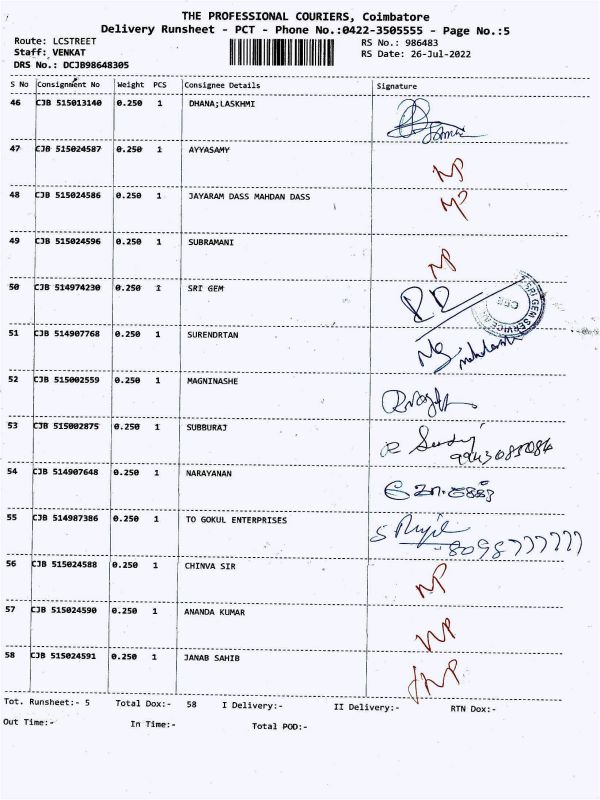 THE PROFESSIONAL COURIERS, Coimbatore
Delivery Runsheet - PCT - Phone No.:0422-3505555 - Page No.:5
Route: LCSTREET RS No.: 986483
Staff: VENKAT RS Date: 26-Jul-2022
DRS No.: DCJB98648305
S No Consignment No Weight PCS Consignee Details Signature
46 CJB 515013140 0.250 1 DHANA;LASKHMI
47 CJB 515024587 0.250 1 AYYASAMY NP
48 CJB 515024586 0.250 1 JAYARAM DASS MAHDAN DASS NP
49 CJB 515024596 0.250 1 SUBRAMANI NP
50 CJB 514974230 0.250 1 SRI GEM
51 CJB 514907768 0.250 1 SURENDRTAN
52 CJB 515002559 0.250 1 MAGNINASHE
53 CJB 515002875 0.250 1 SUBBURAJ
54 CJB 514907648 0.250 1 NARAYANAN
55 CJB 514987386 0.250 1 TO GOKUL ENTERPRISES
8098777777
56 CJB 515024588 0.250 1 CHINVA SIR NP
57 CJB 515024590 0.250 1 ANANDA KUMAR NP
58 CJB 515024591 0.250 1 JANAB SAHIB NP
Tot. Runsheet:- 5 Total Dox:- 58 I Delivery:- II Delivery:- RTN Dox:-
Out Time:- In Time:- Total POD:-